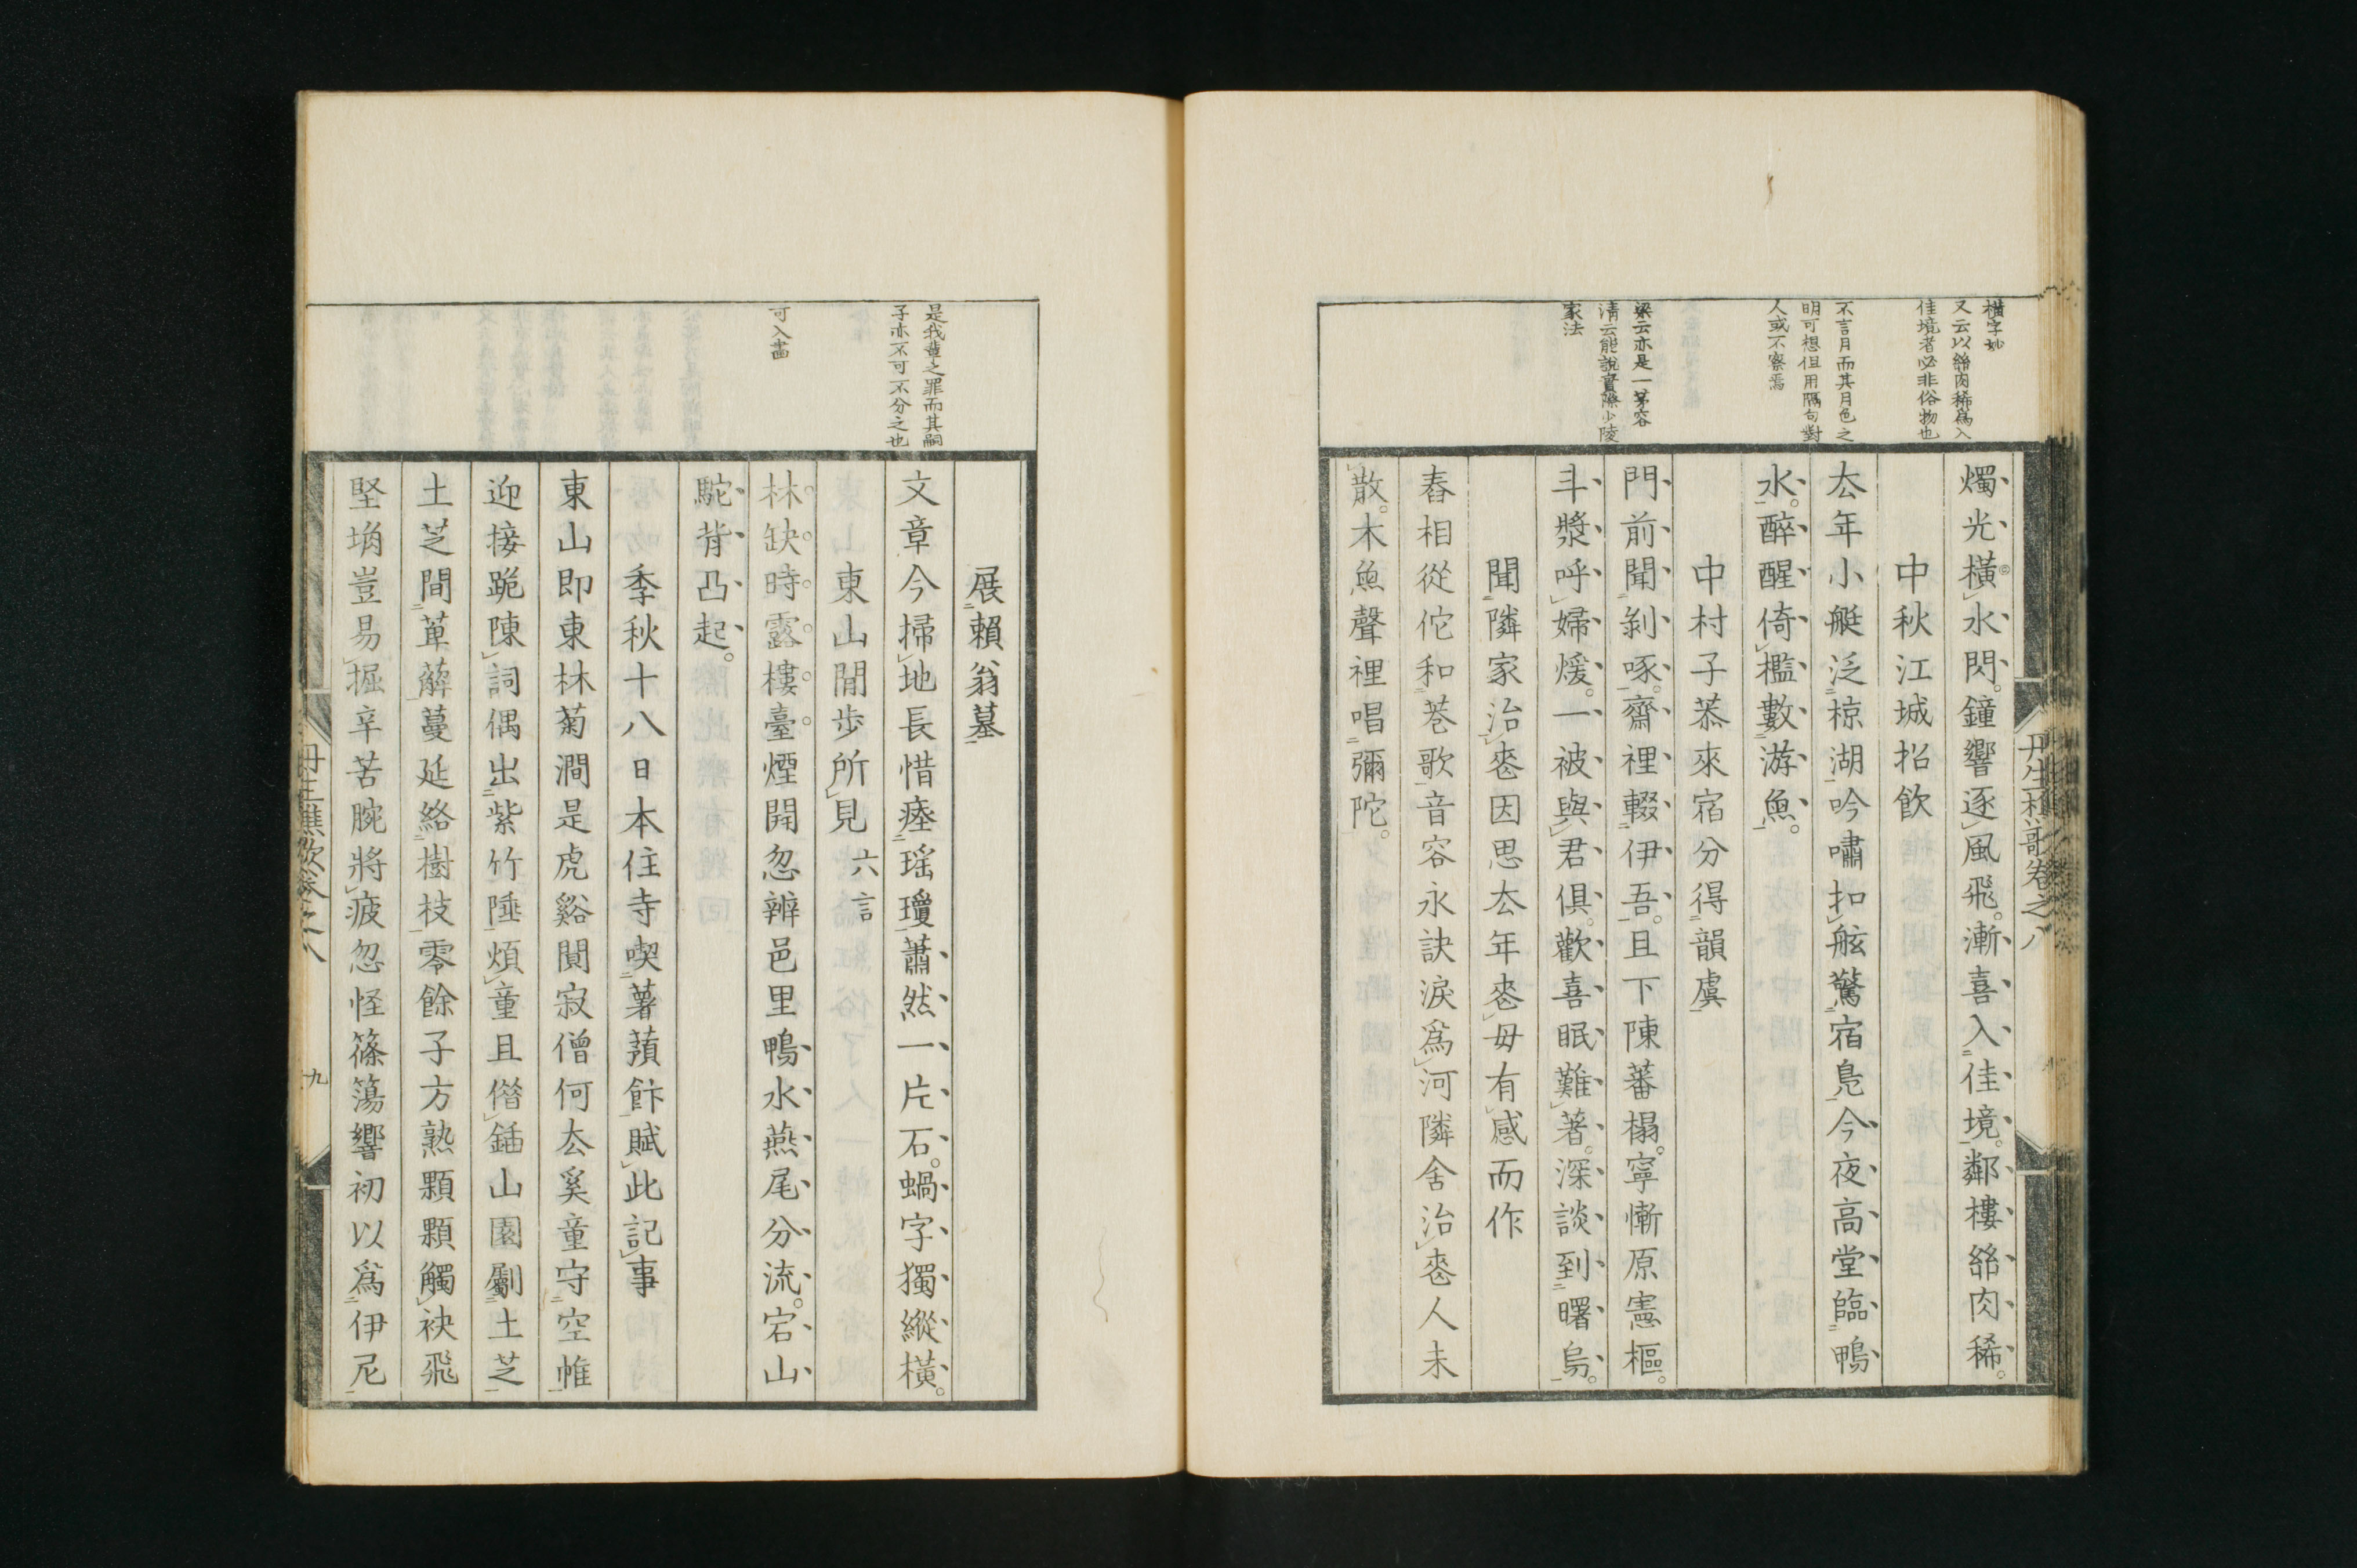 橫字妙
又云以絲肉稀爲入
佳境者必非俗物也
不言月而其月色之
明可想但用隔句對
人或不察焉
梁云亦是一茅容
淸云能說實際少陵
家法
燭光橫水閃鐘響逐風飛漸喜入佳境鄰樓絲肉稀
中秋江城招飮
厺年小艇泛椋湖吟嘯扣舷驚宿鳧今夜高堂臨鴨
水醉醒倚檻數游魚
中村子恭來宿分得韻虞
門前聞剝啄齋裡輟伊吾且下陳蕃榻寧慚原憲樞
斗漿呼婦煖一被與君俱歡喜眠難著深談到曙烏
聞隣家治喪因思厺年喪母有感而作
舂相從佗和巷歌音容永訣淚爲河隣舍治喪人未
散木魚聲裡唱彌陀
丹生樵歌卷之八
是我輩之罪而其嗣
子亦不可不分之也
可入畵
展賴翁墓
文章今掃地長惜瘞瑤瓊蕭然一片石蝸字獨縱橫
東山閒步所見 六言
林缺時露樓臺煙開忽辨邑里鴨水燕尾分流宕山
駝背凸起
季秋十八日本住寺喫薯蕷飰賦此記事
東山即東林菊澗是虎谿闃寂僧何厺奚童守空帷
迎接跪陳詞偶出紫竹陲煩童且偕鍤山園劚土芝
土芝間萆薢蔓延絡樹枝零餘子方熟顆顆觸袂飛
堅埆豈易掘辛苦腕將疲忽怪篠簜響初以爲伊尼
丹生樵歌卷之八
九